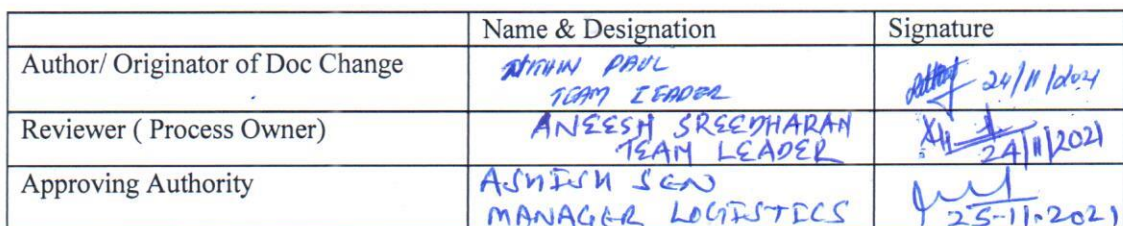 Name & Designation Signature
Author/ Originator of Doc Change NITHIN PAUL
TEAM LEADER 24/11/2021
Reviewer ( Process Owner) ANEESH SREEDHARAN
TEAM LEADER 24/11/2021
Approving Authority ASHISH SEN
MANAGER LOGISTICS 25-11-2021